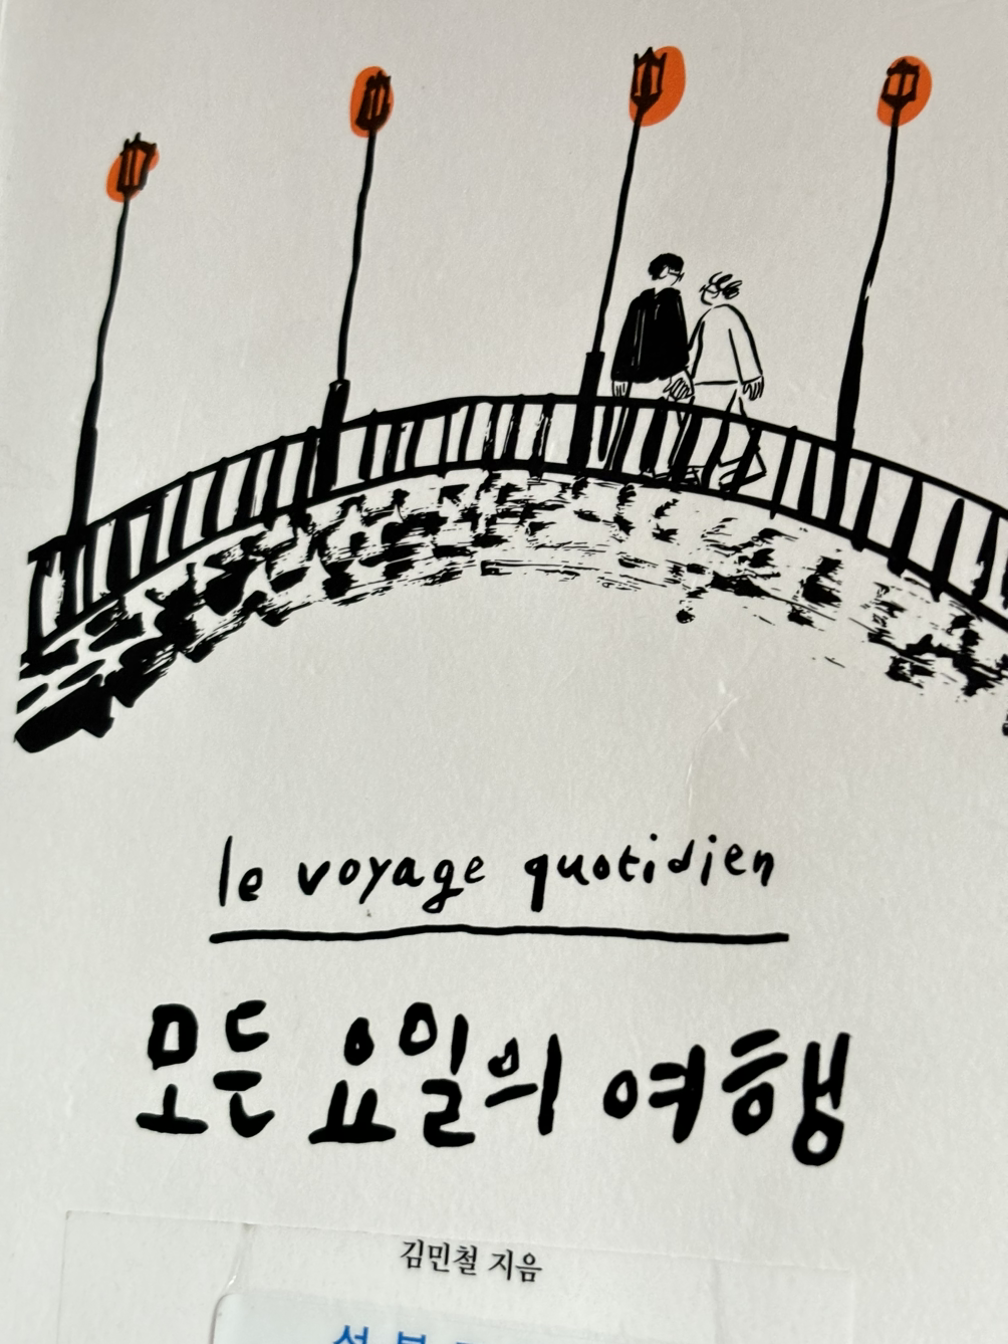 le voyage quotidien
모든 요일의 여행
김민철 지음